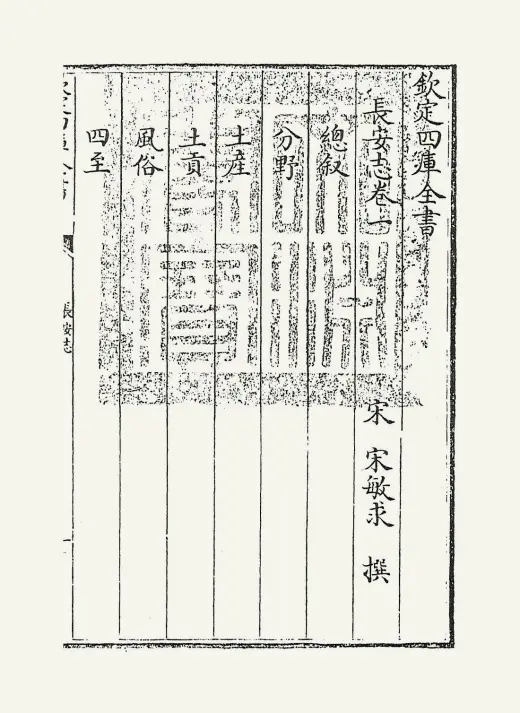 欽定四庫全書
長安志卷一
宋 宋敏求 撰
總叙
分野
土産
土貢
風俗
四至
長安志